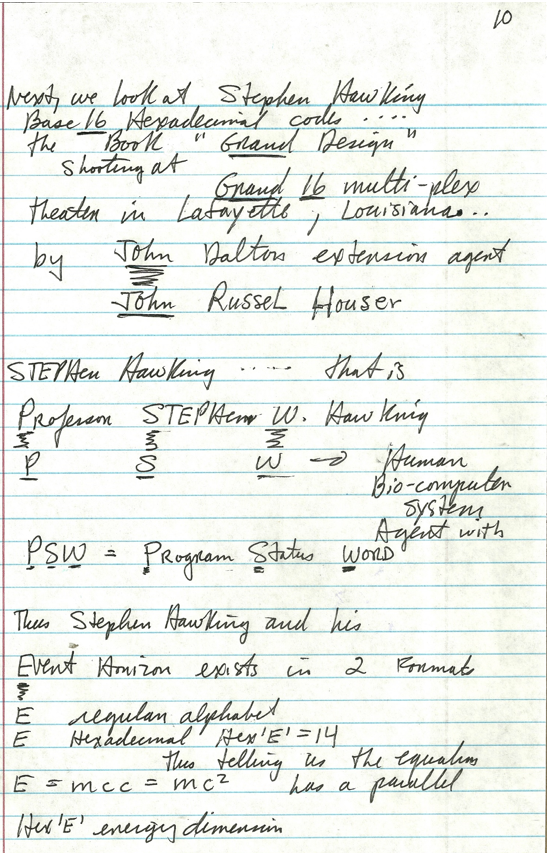 10
Next, we look at Stephen Hawking
Base 16 Hexadecimal codes ....
the Book "Grand Design"
shooting at
Grand 16 multi-plex
theater in Lafayette, Louisiana...
by John Daltons extension agent
John Russel Houser
STEPHen HawKing ..... that is
Professor STEPHen W. HawKing
P S W → Human
Bio-computer
system
Agent with
PSW = Program Status WORD
Thus Stephen HawKing and his
Event Horizon exists in 2 Formats
E regular alphabet
E Hexadecimal Hex 'E' = 14
thus telling us the equation
E = mcc = mc² has a parallel
Hex 'E' energy dimension